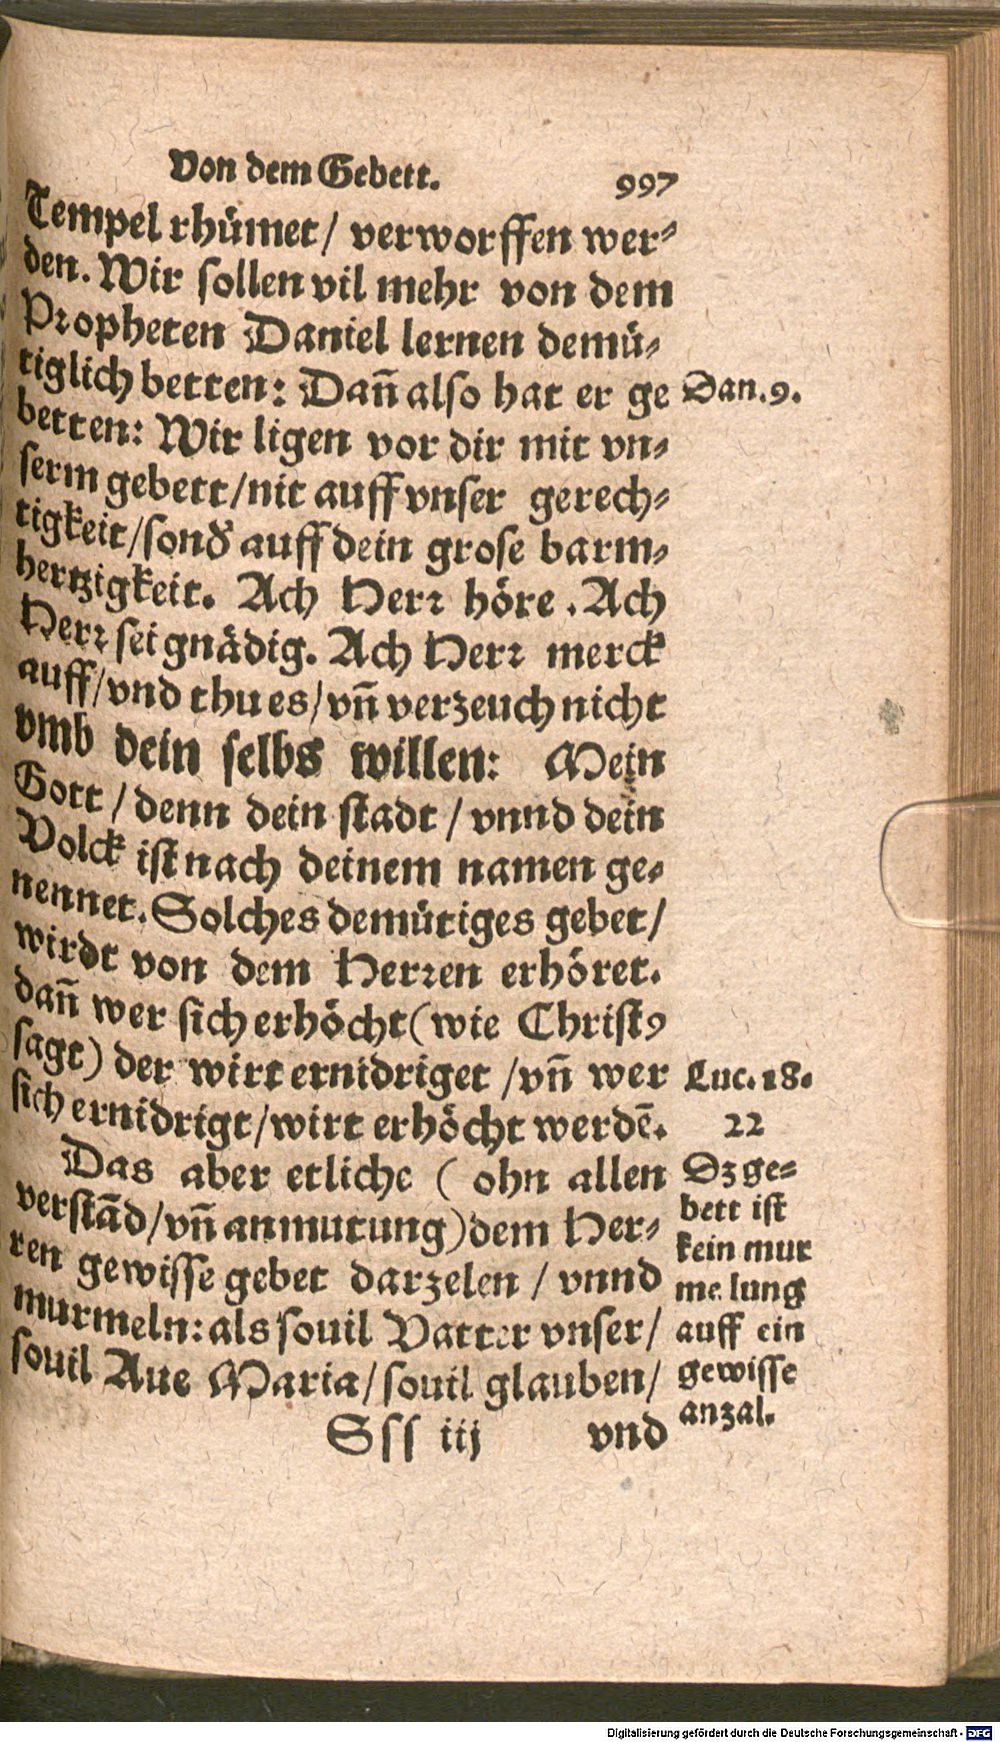 Von dem Gebett. 997
Tempel rhümet/ verworffen wer⸗
den. Wir sollen vil mehr von dem
Propheten Daniel lernen demü⸗
tiglich betten: Dañ also hat er ge
Dan. 9.
betten: Wir ligen vor dir mit vn⸗
serm gebett/nit auff vnser gerech⸗
tigkeit/sond̕ auff dein grose barm⸗
hertzigkeit. Ach Herr höre. Ach
Herr sei gnädig. Ach Herr merck
auff/vnd thu es/vñ verzeuch nicht
vmb dein selbs willen: Mein
Gott/ denn dein stadt/ vnnd dein
Volck ist nach deinem namen ge⸗
nennet. Solches demütiges gebet/
wirdt von dem Herren erhöret.
dañ wer sich erhöcht (wie Christꝰ
sagt) der wirt ernidriget/vñ wer
Luc. 18.
sich ernidrigt/wirt erhöcht werdē.
22
Das aber etliche (ohn allen
verstād/vñ anmutung) dem Her⸗
ren gewisse gebet darzelen/ vnnd
murmeln: als souil Vatter vnser/
souil Aue Maria/souil glauben/
Dz ge⸗
bett ist
kein mur
melung
auff ein
gewisse
anzal.
Sss iij vnd
Digitalisierung gefördert durch die Deutsche Forschungsgemeinschaft - DFG